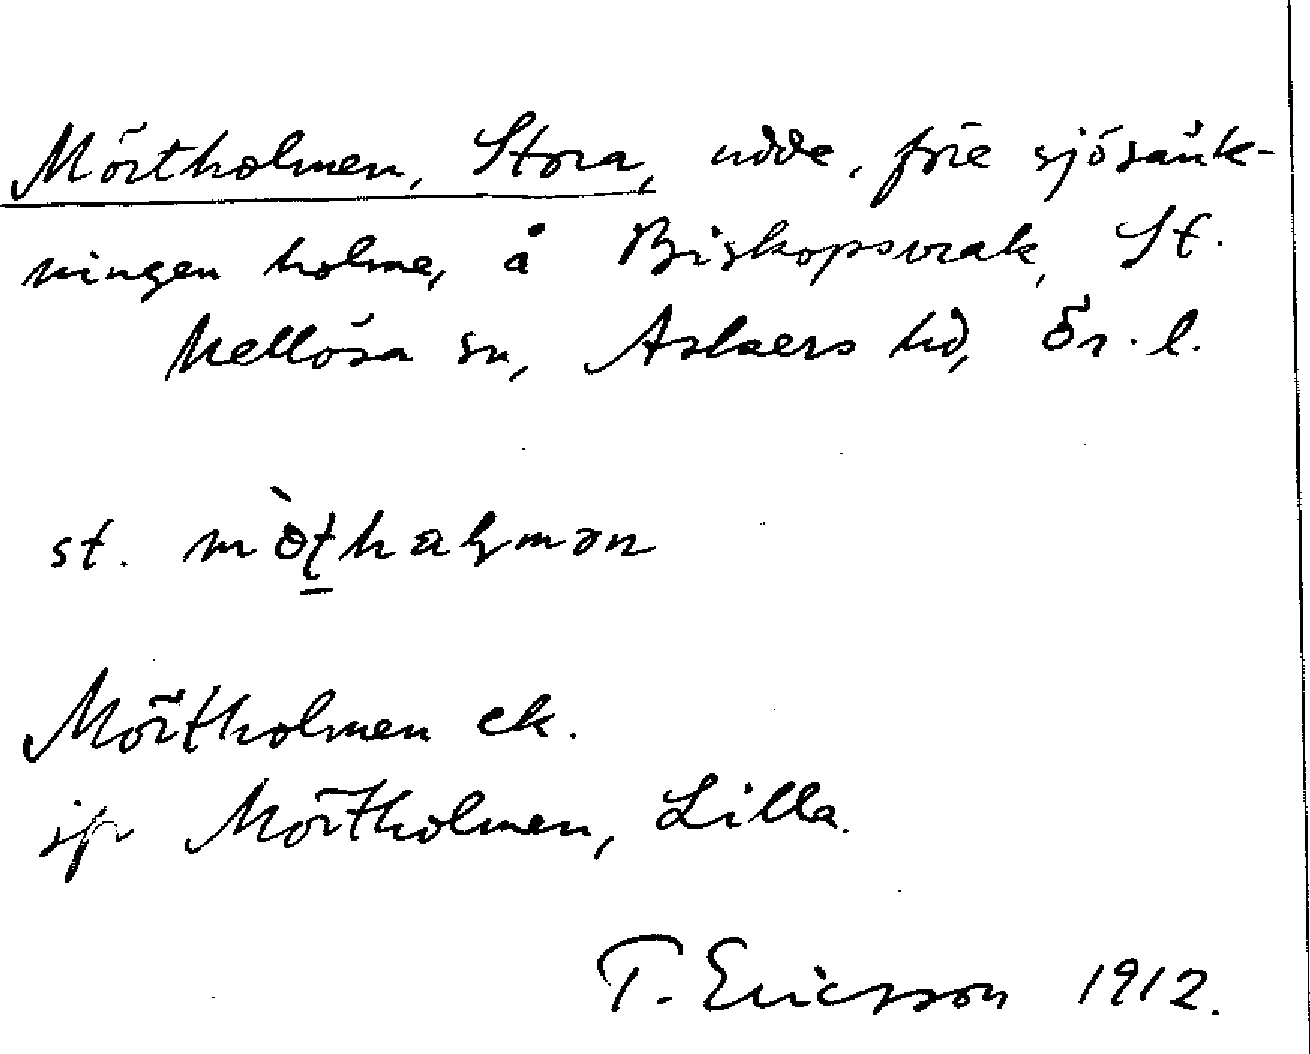 Mörtholmen, Stora, udde, före sjösänk-
ningen holme, å Biskopsvrak, St.
Mellösa sn, Askers hd, Ör. l.
st.
Mörtholmen ek.
jfr Mörtholmen, Lilla.
T. Ericsson 1912.